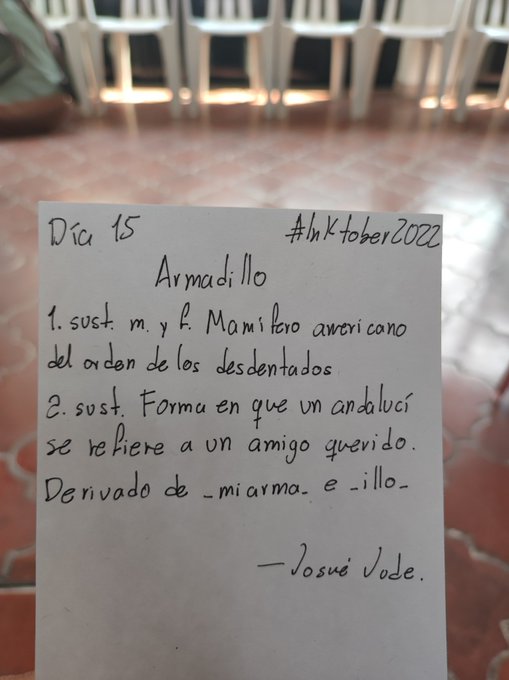 Día 15 #InKtober2022
Armadillo
1. sust. m. y f. Mamífero americano
del orden de los desdentados.
2. sust. Forma en que un andalucí
se refiere a un amigo querido.
Derivado de _miarma_ e _illo_
—Josué Jode.